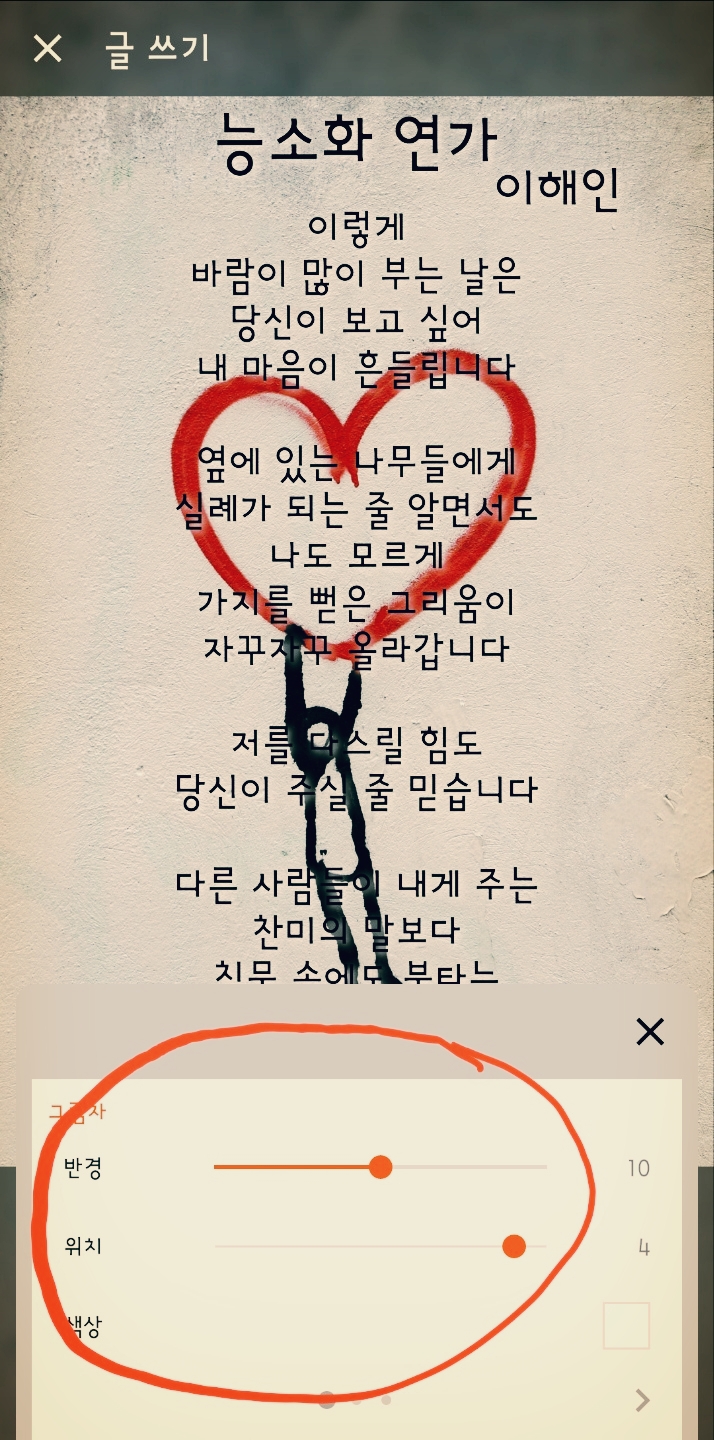 글 쓰기
능소화 연가
이해인
이렇게
바람이 많이 부는 날은
당신이 보고 싶어
내 마음이 흔들립니다
옆에 있는 나무들에게
실례가 되는 줄 알면서도
나도 모르게
가지를 뻗은 그리움이
자꾸자꾸 올라갑니다
저를 다스릴 힘도
당신이 주실 줄 믿습니다
다른 사람들이 내게 주는
찬미의 말보다
침묵 속에도 불타는
그림자
반경 10
위치 4
색상